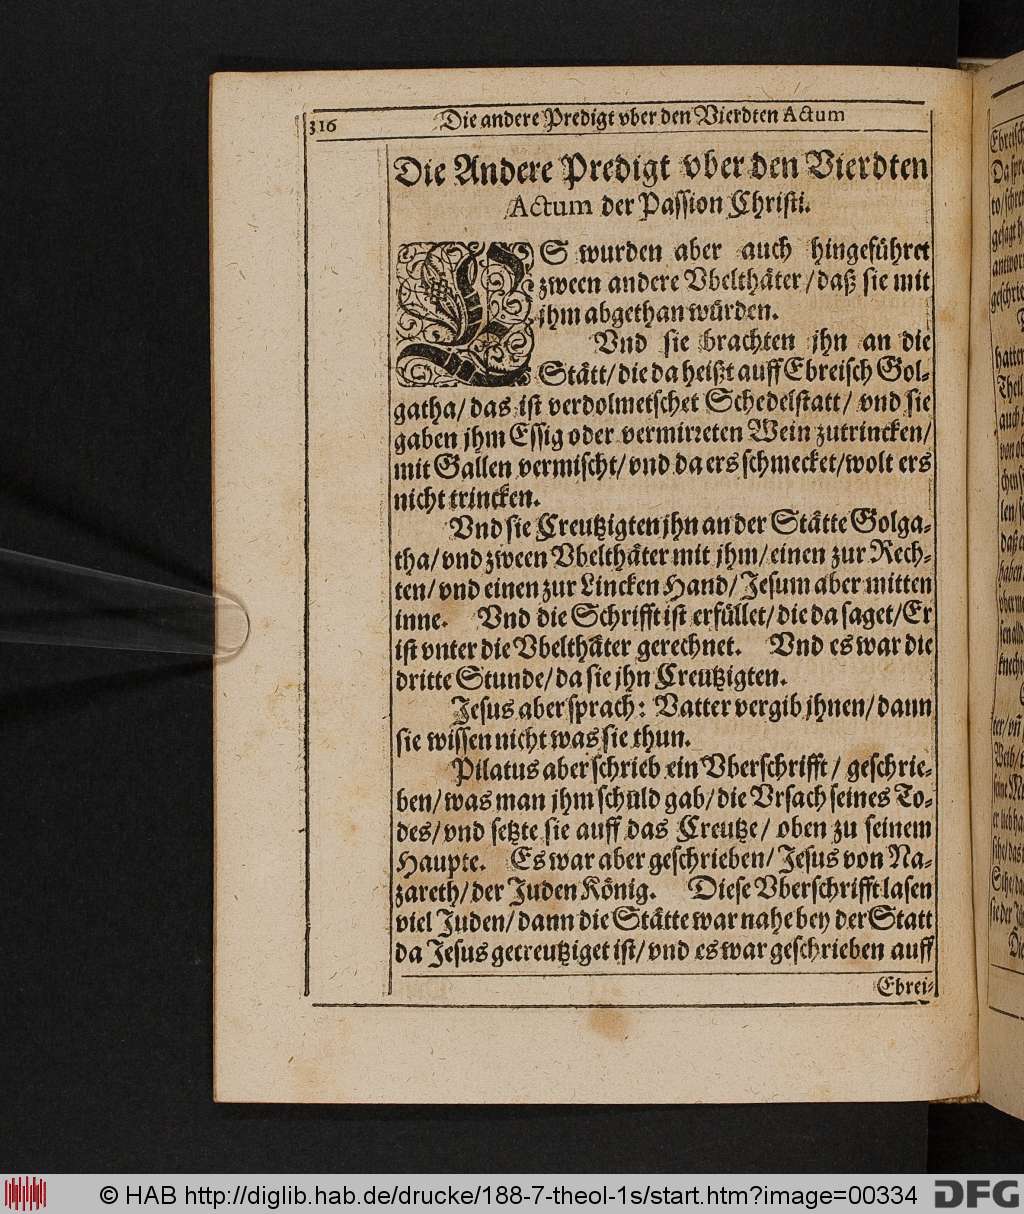 316
Die andere Predigt vber den Vierdten Actum
Die Andere Predigt vber den Vierdten
Actum der Passion Christi.
ES wurden aber auch hingeführet
zween andere Vbelthäter / daß sie mit
jhm abgethan würden.
Vnd sie brachten jhn an die
Stätt / die da heißt auff Ebreisch Gol-
gatha / das ist verdolmetschet Schedelstatt / vnd sie
gaben jhm Essig oder vermirreten Wein zutrincken /
mit Gallen vermischt / vnd da ers schmecket / wolt ers
nicht trincken.
Vnd sie Creutzigten jhn an der Stätte Golga-
tha / vnd zween Vbelthäter mit jhm / einen zur Rech-
ten / vnd einen zur Lincken Hand / Jesum aber mitten
inne. Vnd die Schrifft ist erfüllet / die da saget / Er
ist vnter die Vbelthäter gerechnet. Vnd es war die
dritte Stunde / da sie jhn Creutzigten.
Jesus aber sprach: Vatter vergib jhnen / dann
sie wissen nicht was sie thun.
Pilatus aber schrieb ein Vberschrifft / geschrie-
ben / was man jhm schuld gab / die Vrsach seines To-
des / vnd setzte sie auff das Creutze / oben zu seinem
Haupte. Es war aber geschrieben / Jesus von Na-
zareth / der Juden König. Diese Vberschrifft lasen
viel Juden / dann die Stätte war nahe bey der Statt
da Jesus gecreutziget ist / vnd es war geschrieben auff
Ebrei-
© HAB http://diglib.hab.de/drucke/188-7-theol-1s/start.htm?image=00334
DFG